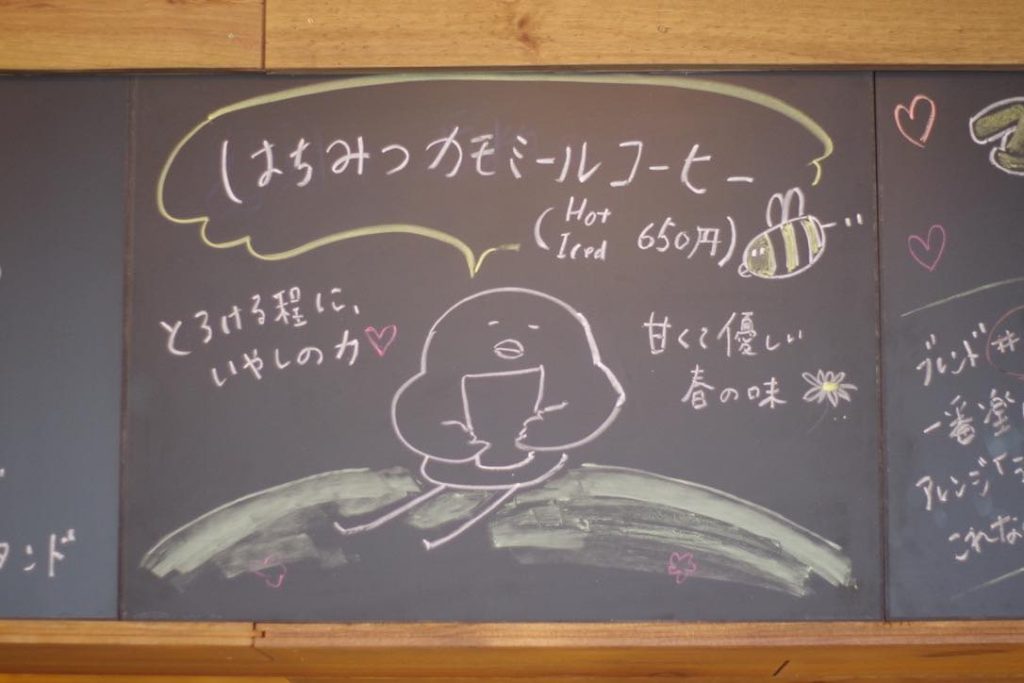 はちみつカモミールコーヒー
(Hot
Iced 650円)
とろける程に、
いやしの力
甘くて優しい
春の味
タンド
ブレンド #
一番楽し
アレンジ
これな